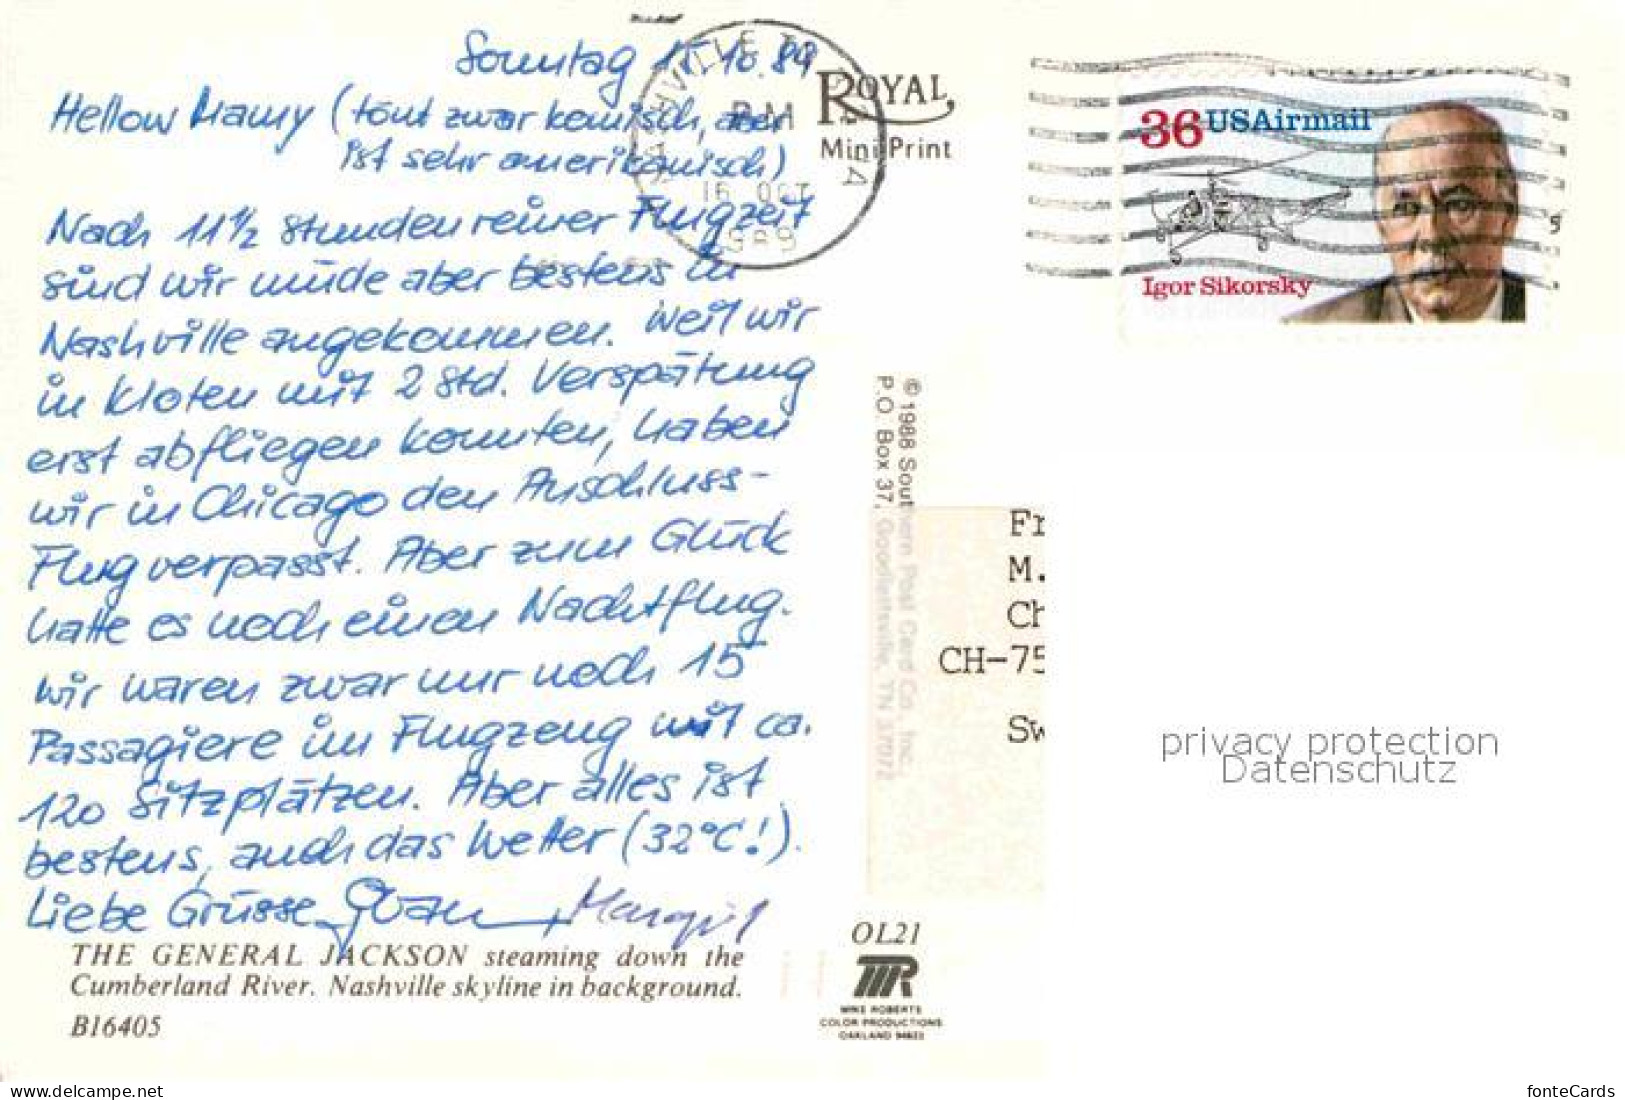 Sonntag 15.10.89
Hellow Mamy (tönt zwar komisch, aber
ist sehr amerikanisch)
Nach 11½ Stunden reiner Flugzeit
sind wir müde aber bestens in
Nashville angekommen. Weil wir
in Kloten mit 2 Std. Verspätung
erst abfliegen konnten, haben
wir in Chicago den Anschluss-
Flug verpasst. Aber zum Glück
hatte es noch einen Nachtflug.
Wir waren zwar nur noch 15
Passagiere im Flugzeug mit ca.
120 Sitzplätzen. Aber alles ist
bestens, auch das Wetter (32°C!).
Liebe Grüsse
THE GENERAL JACKSON steaming down the
Cumberland River. Nashville skyline in background.
B16405
ROYAL
Mini Print
PM
16 OCT
1989
36 USAirmail
Igor Sikorsky
© 1988 Southern Post Card Co., Inc.,
P.O. Box 37, Goodlettsville, TN 37072
Fr
M.
Ch
CH-75
Sw
privacy protection
Datenschutz
OL21
MR
MIKE ROBERTS
COLOR PRODUCTIONS
OAKLAND 94623
www.delcampe.net
fonteCards